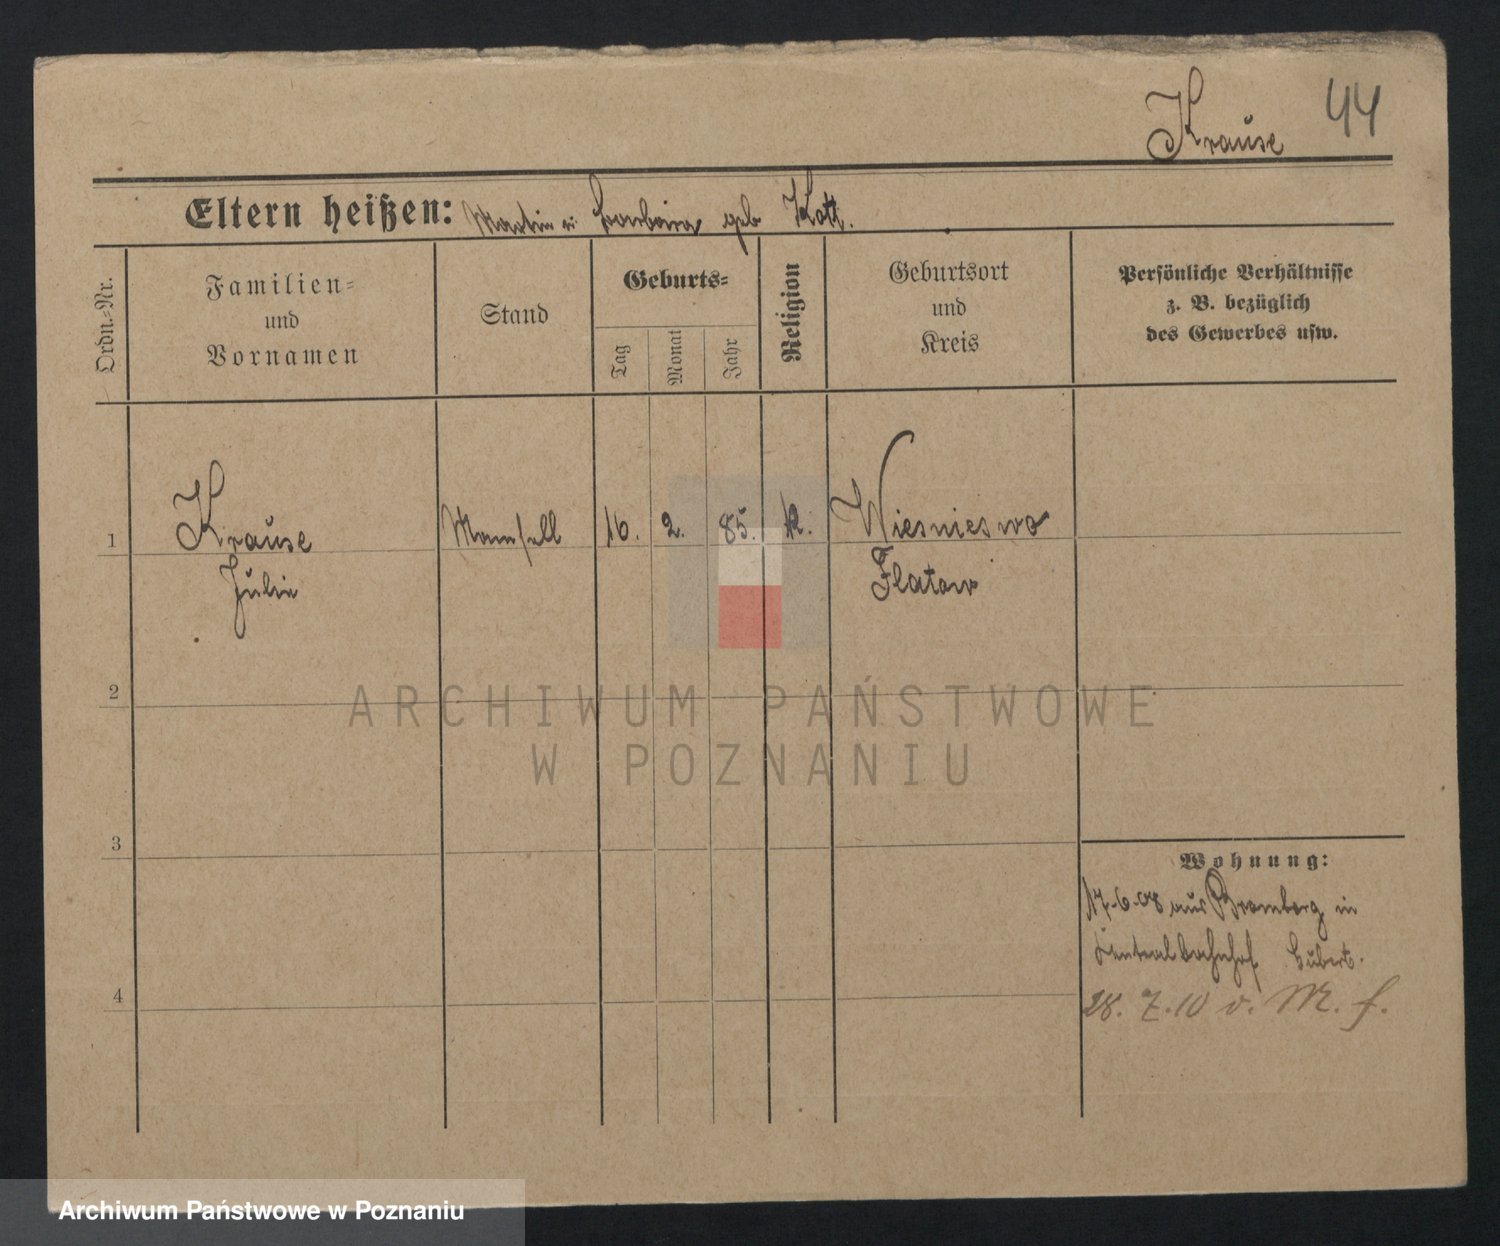 Krause 44
Eltern heißen: Martin u. Barbara geb Kott.
Ordn.=Nr.
Familien=
und
Vornamen
Stand
Geburts=
Tag
Monat
Jahr
Religion
Geburtsort
und
Kreis
Persönliche Verhältnisse
z. B. bezüglich
des Gewerbes usw.
1 Krause Mamsell 16. 2. 85. k. Wiesnieswo
Julie Flatow
2
ARCHIWUM PAŃSTWOWE
W POZNANIU
3
Wohnung:
17.6.08 aus Bromberg in
Centralbahnhof Hubert.
4
28. 7. 10 v. M. f.
Archiwum Państwowe w Poznaniu